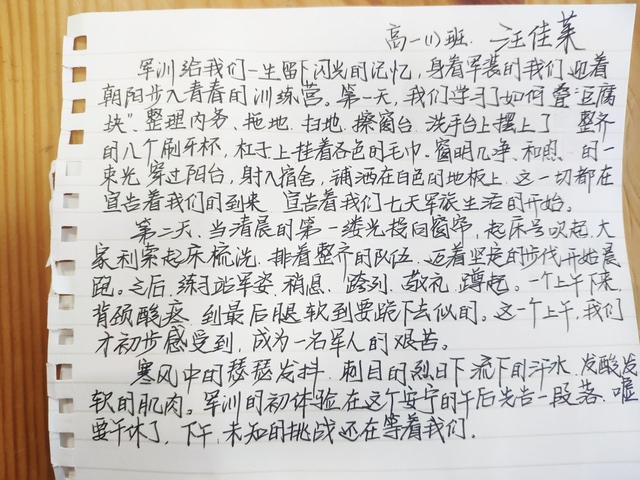 高一(1)班 汪佳茱
军训给我们一生留下闪光的记忆,身着军装的我们迎着
朝阳步入青春的训练营。第一天,我们学习了如何叠“豆腐
块”、整理内务、拖地、扫地、擦窗台、洗手台上摆上了 整齐
的八个刷牙杯,杠子上挂着各色的毛巾。窗明几净、和煦 的一
束光 穿过阳台,射入宿舍,铺洒在白色的地板上,这一切都在
宣告着我们的到来,宣告着我们七天军旅生活的开始。
第二天,当清晨的第一缕光投向窗帘,起床号吹起,大
家利索起床梳洗,排着整齐的队伍,迈着坚定的步伐开始晨
跑。之后,练习站军姿、稍息、跨列、敬礼、蹲起。一个上午下来,
背颈酸疼,到最后腿软到要跪下去似的。这一个上午,我们
才初步感受到,成为一名军人的艰苦。
寒风中的瑟瑟发抖,刺目的烈日下流下的汗水,发酸发
软的肌肉。军训的初体验在这个安宁的午后先告一段落,嘘
要午休了,下午,未知的挑战还在等着我们.